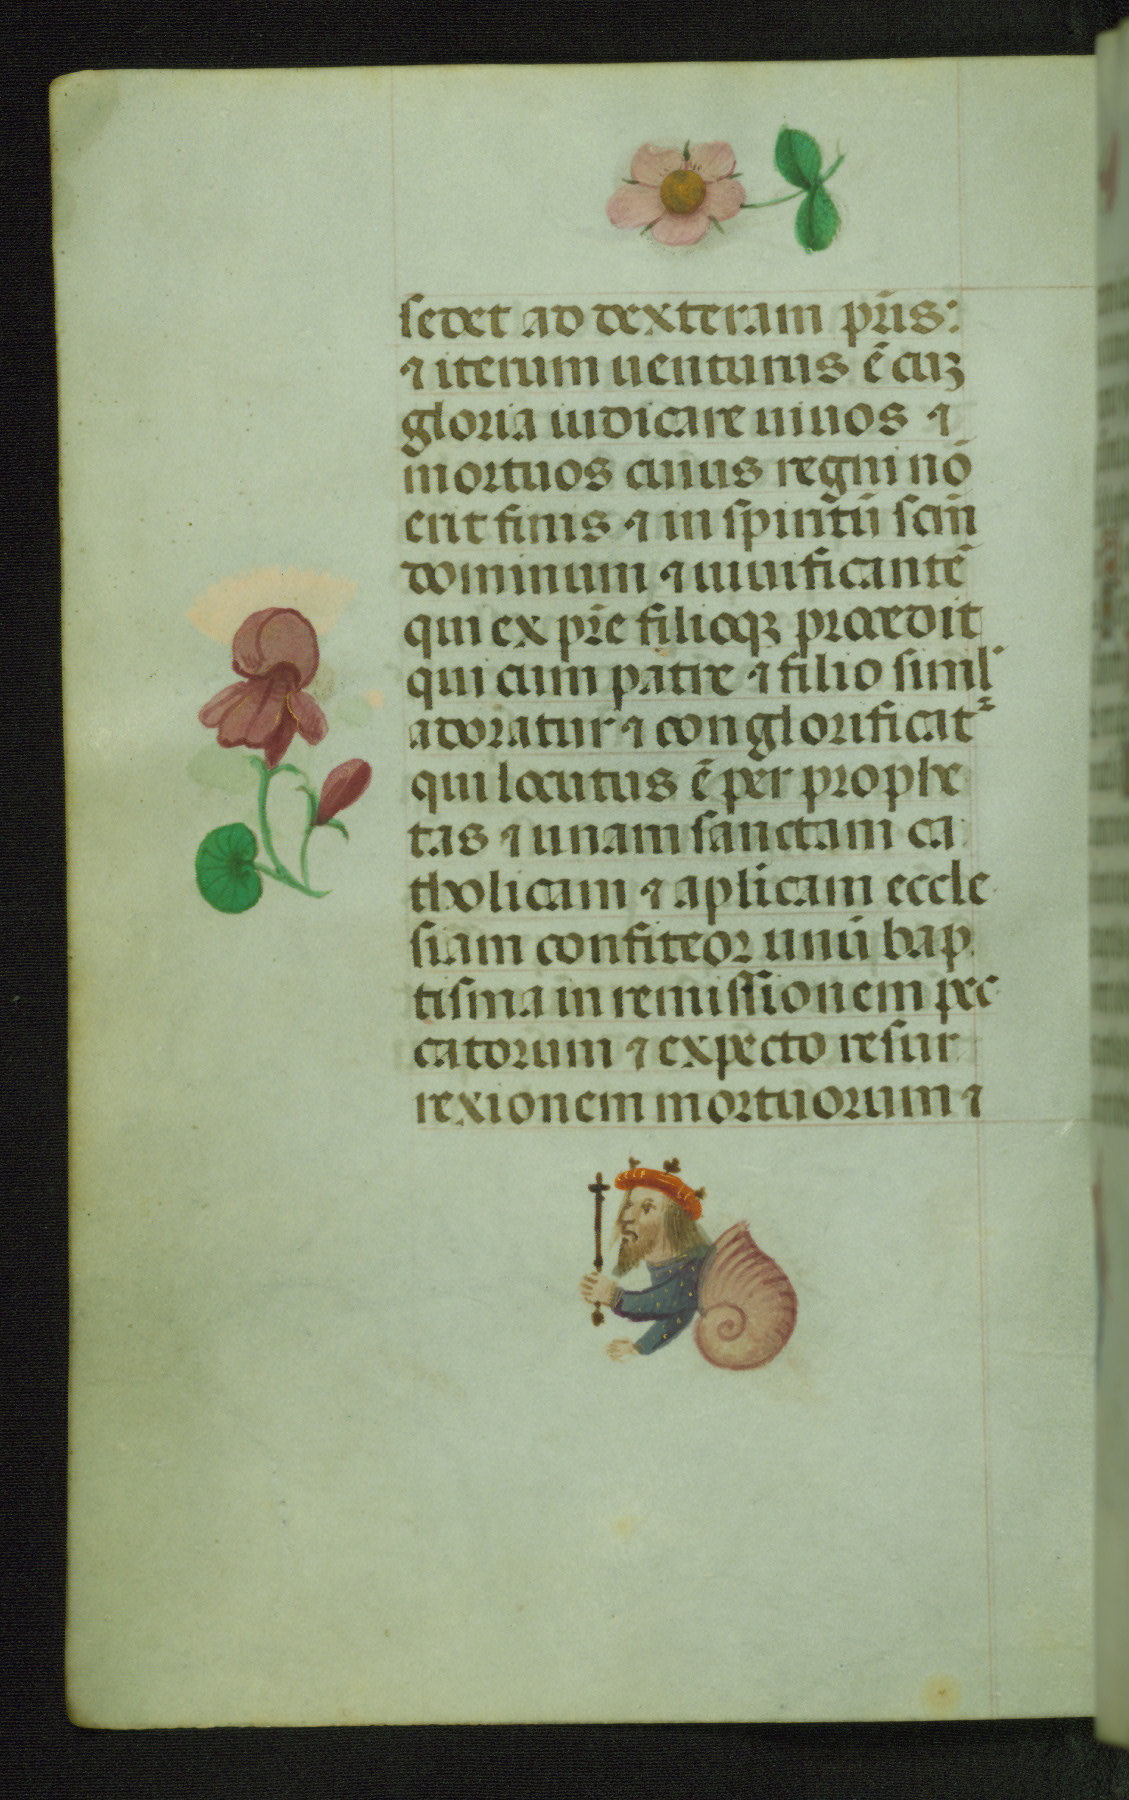 sedet ad dexteram pr̃is:
⁊ iterum uenturus ẽ cuȝ
gloria iudicare uiuos ⁊
mortuos cuius regni nō
erit finis ⁊ in spiritũ scm̃
dominum ⁊ uiuificantē
qui ex pr̃e filioqȝ procedit
qui cum patre ⁊ filio simĺ
adoratur ⁊ conglorificat᷑
qui locutus ẽ per prophe
tas ⁊ unam sanctam ca
tholicam ⁊ aplicam eccle
siam confiteor unũ bap
tisma in remissionem pec
catorum ⁊ expecto resur
rexionem mortuorum ⁊